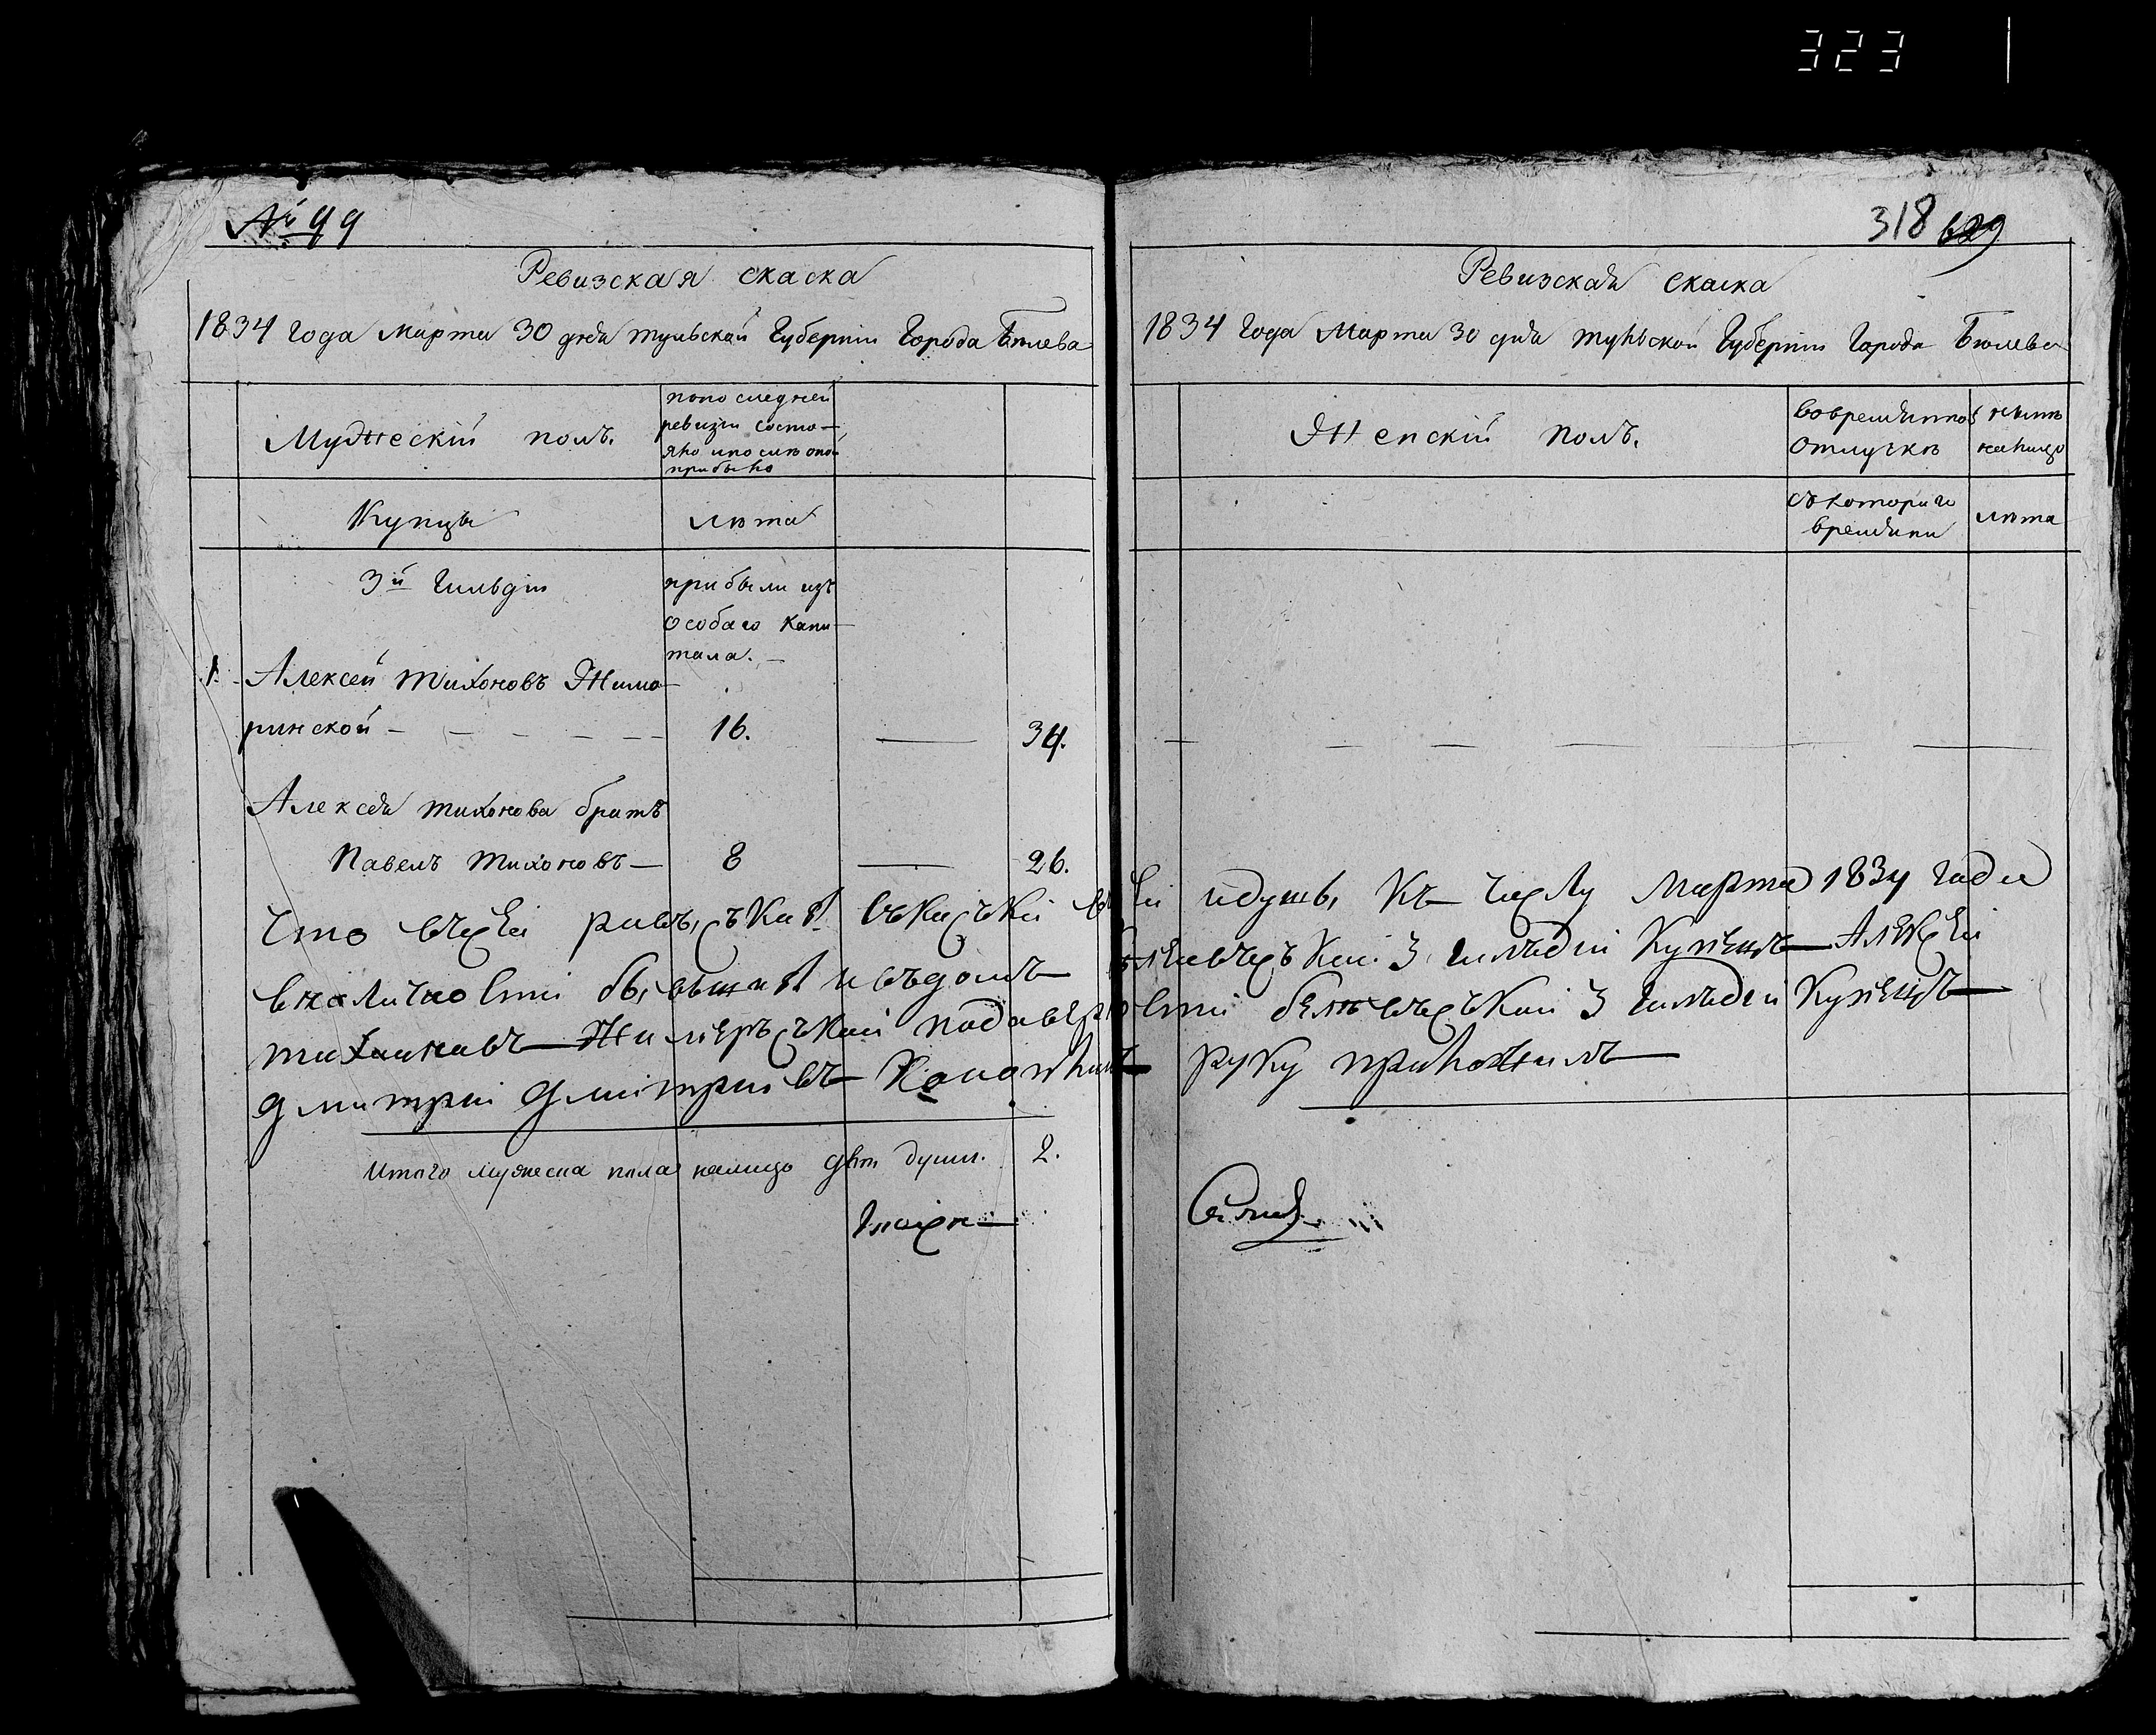 323
№ 99
Ревизская скаска
1834 года Марта 30 дня тульской Губернии Города Бѣлева
Мужескій полъ.
попоследней
ревизіи состо-
яло ипослѣ оной
прибыло
Купцы
лѣта
3й Гильдіи
прибыли изъ
особаго капи-
тала.
1. Алексей тихоновъ Жима-
ринской - 16. — 34.
Алексея тихонова братъ
Павелъ тихоновъ — 8 — 26.
Итого мужеска пола налицо двѣ души. 2.
318 629
Ревизская скаска
1834 года Марта 30 дня тульской Губернии Города Бѣлева
Женскій полъ.
вовременной
отлучкѣ
нынѣ
налицо
съкотораго
времени
лѣта
что въсей ревъ,съкай съкасъки идушь, къ числу Марта 1834 года
вналичностии бывъшай исъдомъ 3 гилъдіи Купецъ Алексеи
тихановъ Жимеръскай подаверностии белевъскай 3 гилъдіи Купецъ
дмитрии дмитриевъ руку приложилъ